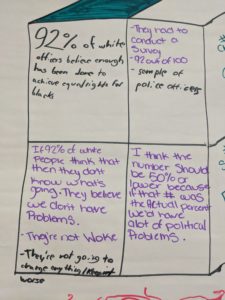 92% of white
officers believe enough
has been done to
achieve equal rights for
blacks
- They had to
conduct a
Survey
- 92 out of 100
- sample of
police officers
If 92% of white
People think that
then they dont
know what's
going. They believe
we don't have
Problems.
- They're not Woke
- They're not going to
change anything /
worse
I think
the number should
be 50% or
lower because
if that # was
the Actual percent
we'd have
alot of political
Problems.